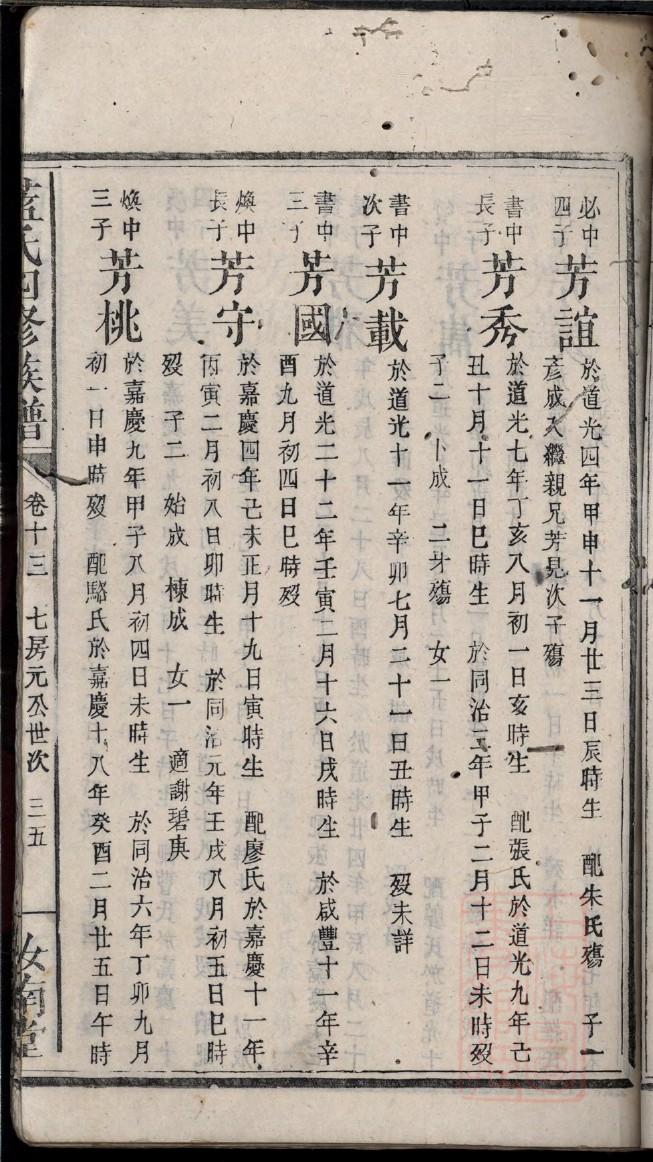 必中
四子
芳誼
於道光四年甲申十一月廿三日辰時生 配朱氏殤 子一
彥成入繼親兄芳晃次子殤
書中
長子
芳秀
於道光七年丁亥八月初一日亥時生 配張氏於道光九年己
丑十月十一日巳時生 於同治三年甲子二月十二日未時歿
子二 卜成 二牙殤 女一
書中
次子
芳載
於道光十一年辛卯七月二十一日丑時生 歿未詳
書中
三子
芳國
於道光二十二年壬寅二月十六日戌時生 於咸豐十一年辛
酉九月初四日巳時歿
煥中
長子
芳守
於嘉慶四年己未正月十九日寅時生 配廖氏於嘉慶十一年
丙寅二月初八日卯時生 於同治元年壬戌八月初五日巳時
歿 子二 始成 棟成 女一 適謝碧庚
煥中
三子
芳桃
於嘉慶九年甲子八月初四日未時生 於同治六年丁卯九月
初一日申時歿 配駱氏於嘉慶十八年癸酉二月廿五日午時
藍氏四修族譜 卷十三 七房元公世次 三五 汝南堂